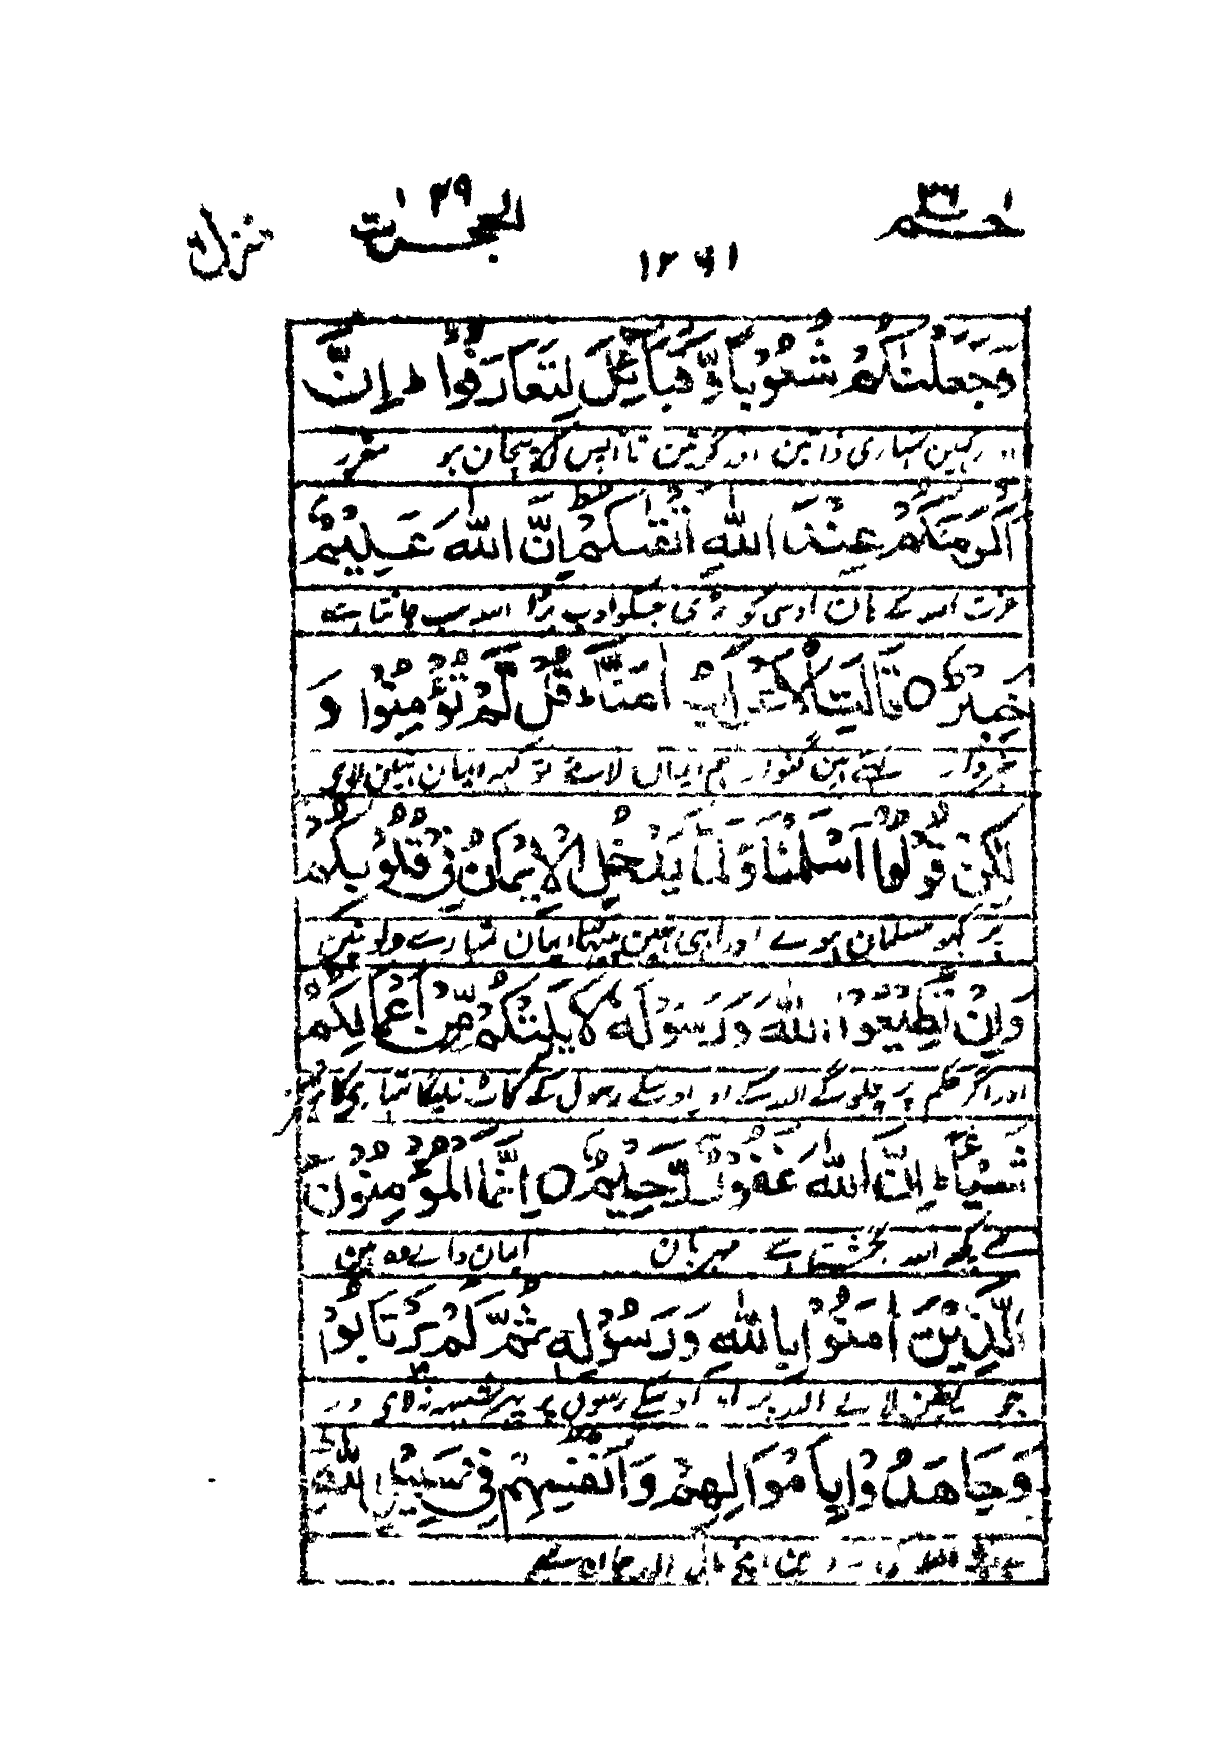 حٰم ٢٦
الحجرٰت ٢٩
منزل
١٢٦١
وَجَعَلْنٰكُمْ شُعُوْبًا وَّقَبَآئِلَ لِتَعَارَفُوْا ط اِنَّ
اور رکہین تمہاری ذاتین اور گوتین تا آپس کی پہچان ہو مقرر
اَكْرَمَكُمْ عِنْدَ اللّٰهِ اَتْقٰىكُمْ ط اِنَّ اللّٰهَ عَلِيْمٌ
عزت اللہ کے ہان اوسی کو بڑی جسکو ادب بڑا اللہ سب جانتا ہے
خَبِيْرٌ ○ قَالَتِ الْاَعْرَابُ اٰمَنَّا ط قُلْ لَّمْ تُؤْمِنُوْا وَ
خبردار کہتے ہین گنوار ہم ایمان لائے تو کہہ ایمان نہین لائے
لٰكِنْ قُوْلُوْٓا اَسْلَمْنَا وَلَمَّا يَدْخُلِ الْاِيْمَانُ فِيْ قُلُوْبِكُمْ
پر کہو مسلمان ہوے اور ابہی نہین پیٹہا ایمان تمہارے دلو نمین
وَاِنْ تُطِيْعُوا اللّٰهَ وَرَسُوْلَهٗ لَا يَلِتْكُمْ مِّنْ اَعْمَالِكُمْ
اور اگر حکم پر چلوگے اللہ کے اور اوسکے رسول کے کاٹ نلیگا تمہاری
شَيْئًا ط اِنَّ اللّٰهَ غَفُوْرٌ رَّحِيْمٌ ○ اِنَّمَا الْمُؤْمِنُوْنَ
سے کچہہ اللہ بخشتا ہے مہربان ایمان والے وہ ہین
الَّذِيْنَ اٰمَنُوْا بِاللّٰهِ وَرَسُوْلِهٖ ثُمَّ لَمْ يَرْتَابُوْا
جو یقین لائے اللہ پر اور اوسکے رسول پر پہر شبہہ نہ لائے اور
وَجَاهَدُوْا بِاَمْوَالِهِمْ وَاَنْفُسِهِمْ فِيْ سَبِيْلِ اللّٰهِ